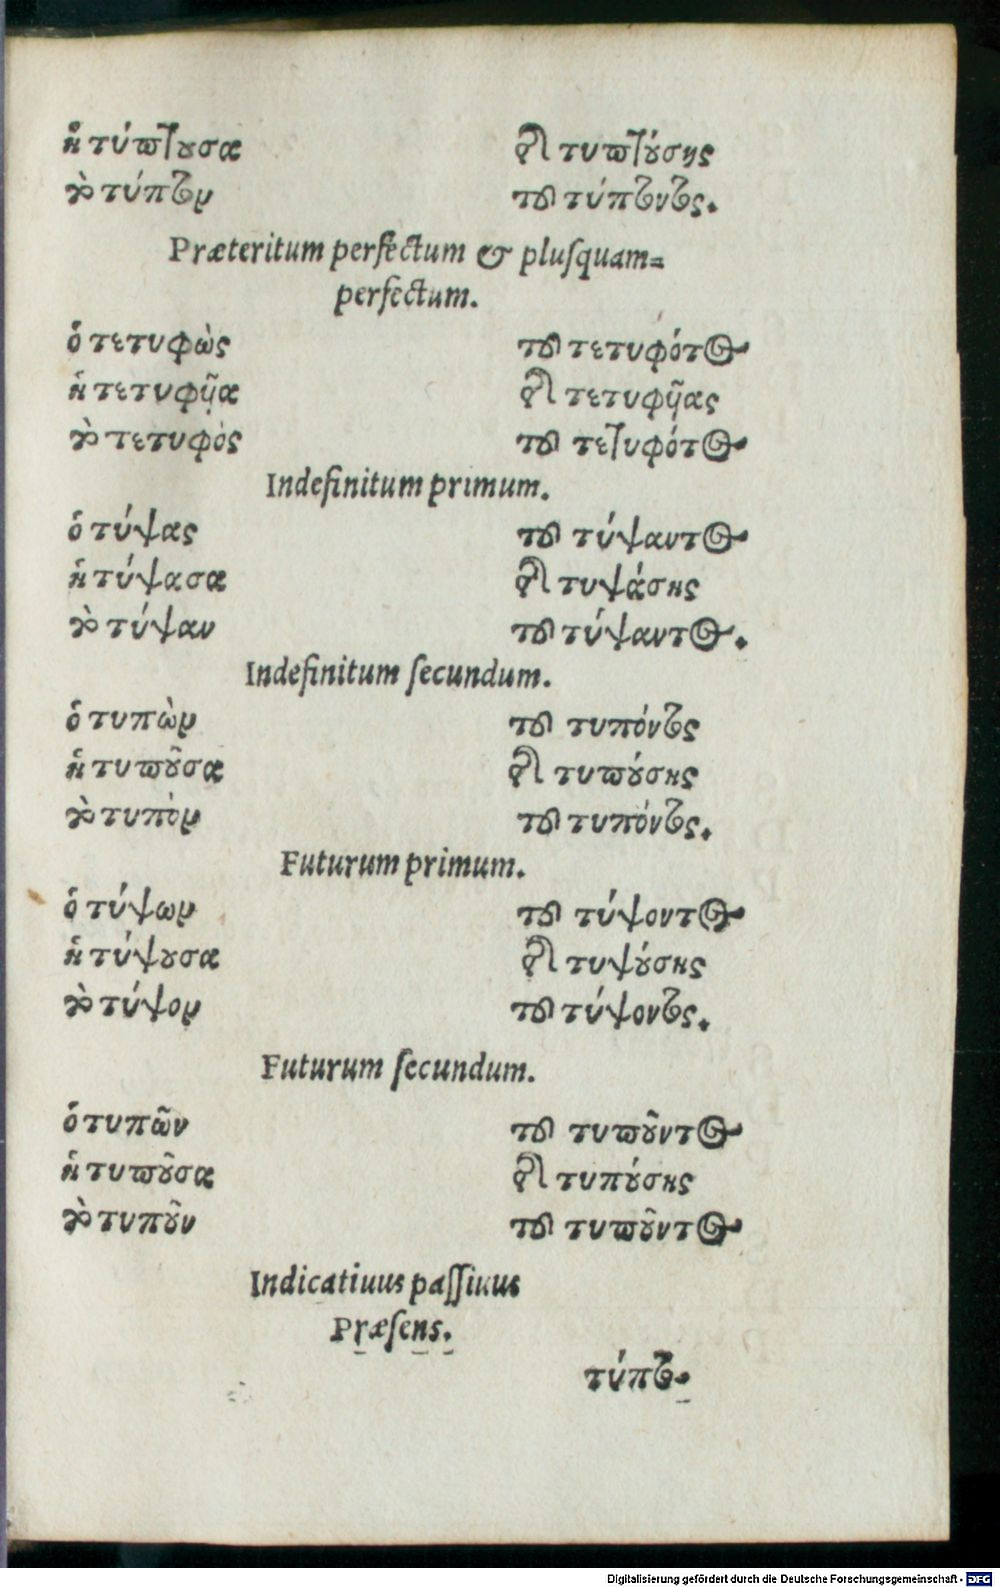 ἡ τύπτουσα τῆς τυπτούσης
τὸ τύπτον τοῦ τύπτοντος.
Præteritum perfectum & plusquam=
perfectum.
ὁ τετυφὼς τοῦ τετυφότος
ἡ τετυφῦα τῆς τετυφῦας
τὸ τετυφὸς τοῦ τετυφότος
Indefinitum primum.
ὁ τύψας τοῦ τύψαντος
ἡ τύψασα τῆς τυψάσης
τὸ τύψαν τοῦ τύψαντος.
Indefinitum secundum.
ὁ τυπὼν τοῦ τυπόντος
ἡ τυποῦσα τῆς τυπούσης
τὸ τυπὸν τοῦ τυπόντος.
Futurum primum.
ὁ τύψων τοῦ τύψοντος
ἡ τύψουσα τῆς τυψούσης
τὸ τύψον τοῦ τύψοντος.
Futurum secundum.
ὁ τυπῶν τοῦ τυποῦντος
ἡ τυποῦσα τῆς τυπούσης
τὸ τυποῦν τοῦ τυποῦντος
Indicatiuus passiuus
Præsens.
τύπτο-
Digitalisierung gefördert durch die Deutsche Forschungsgemeinschaft - DFG